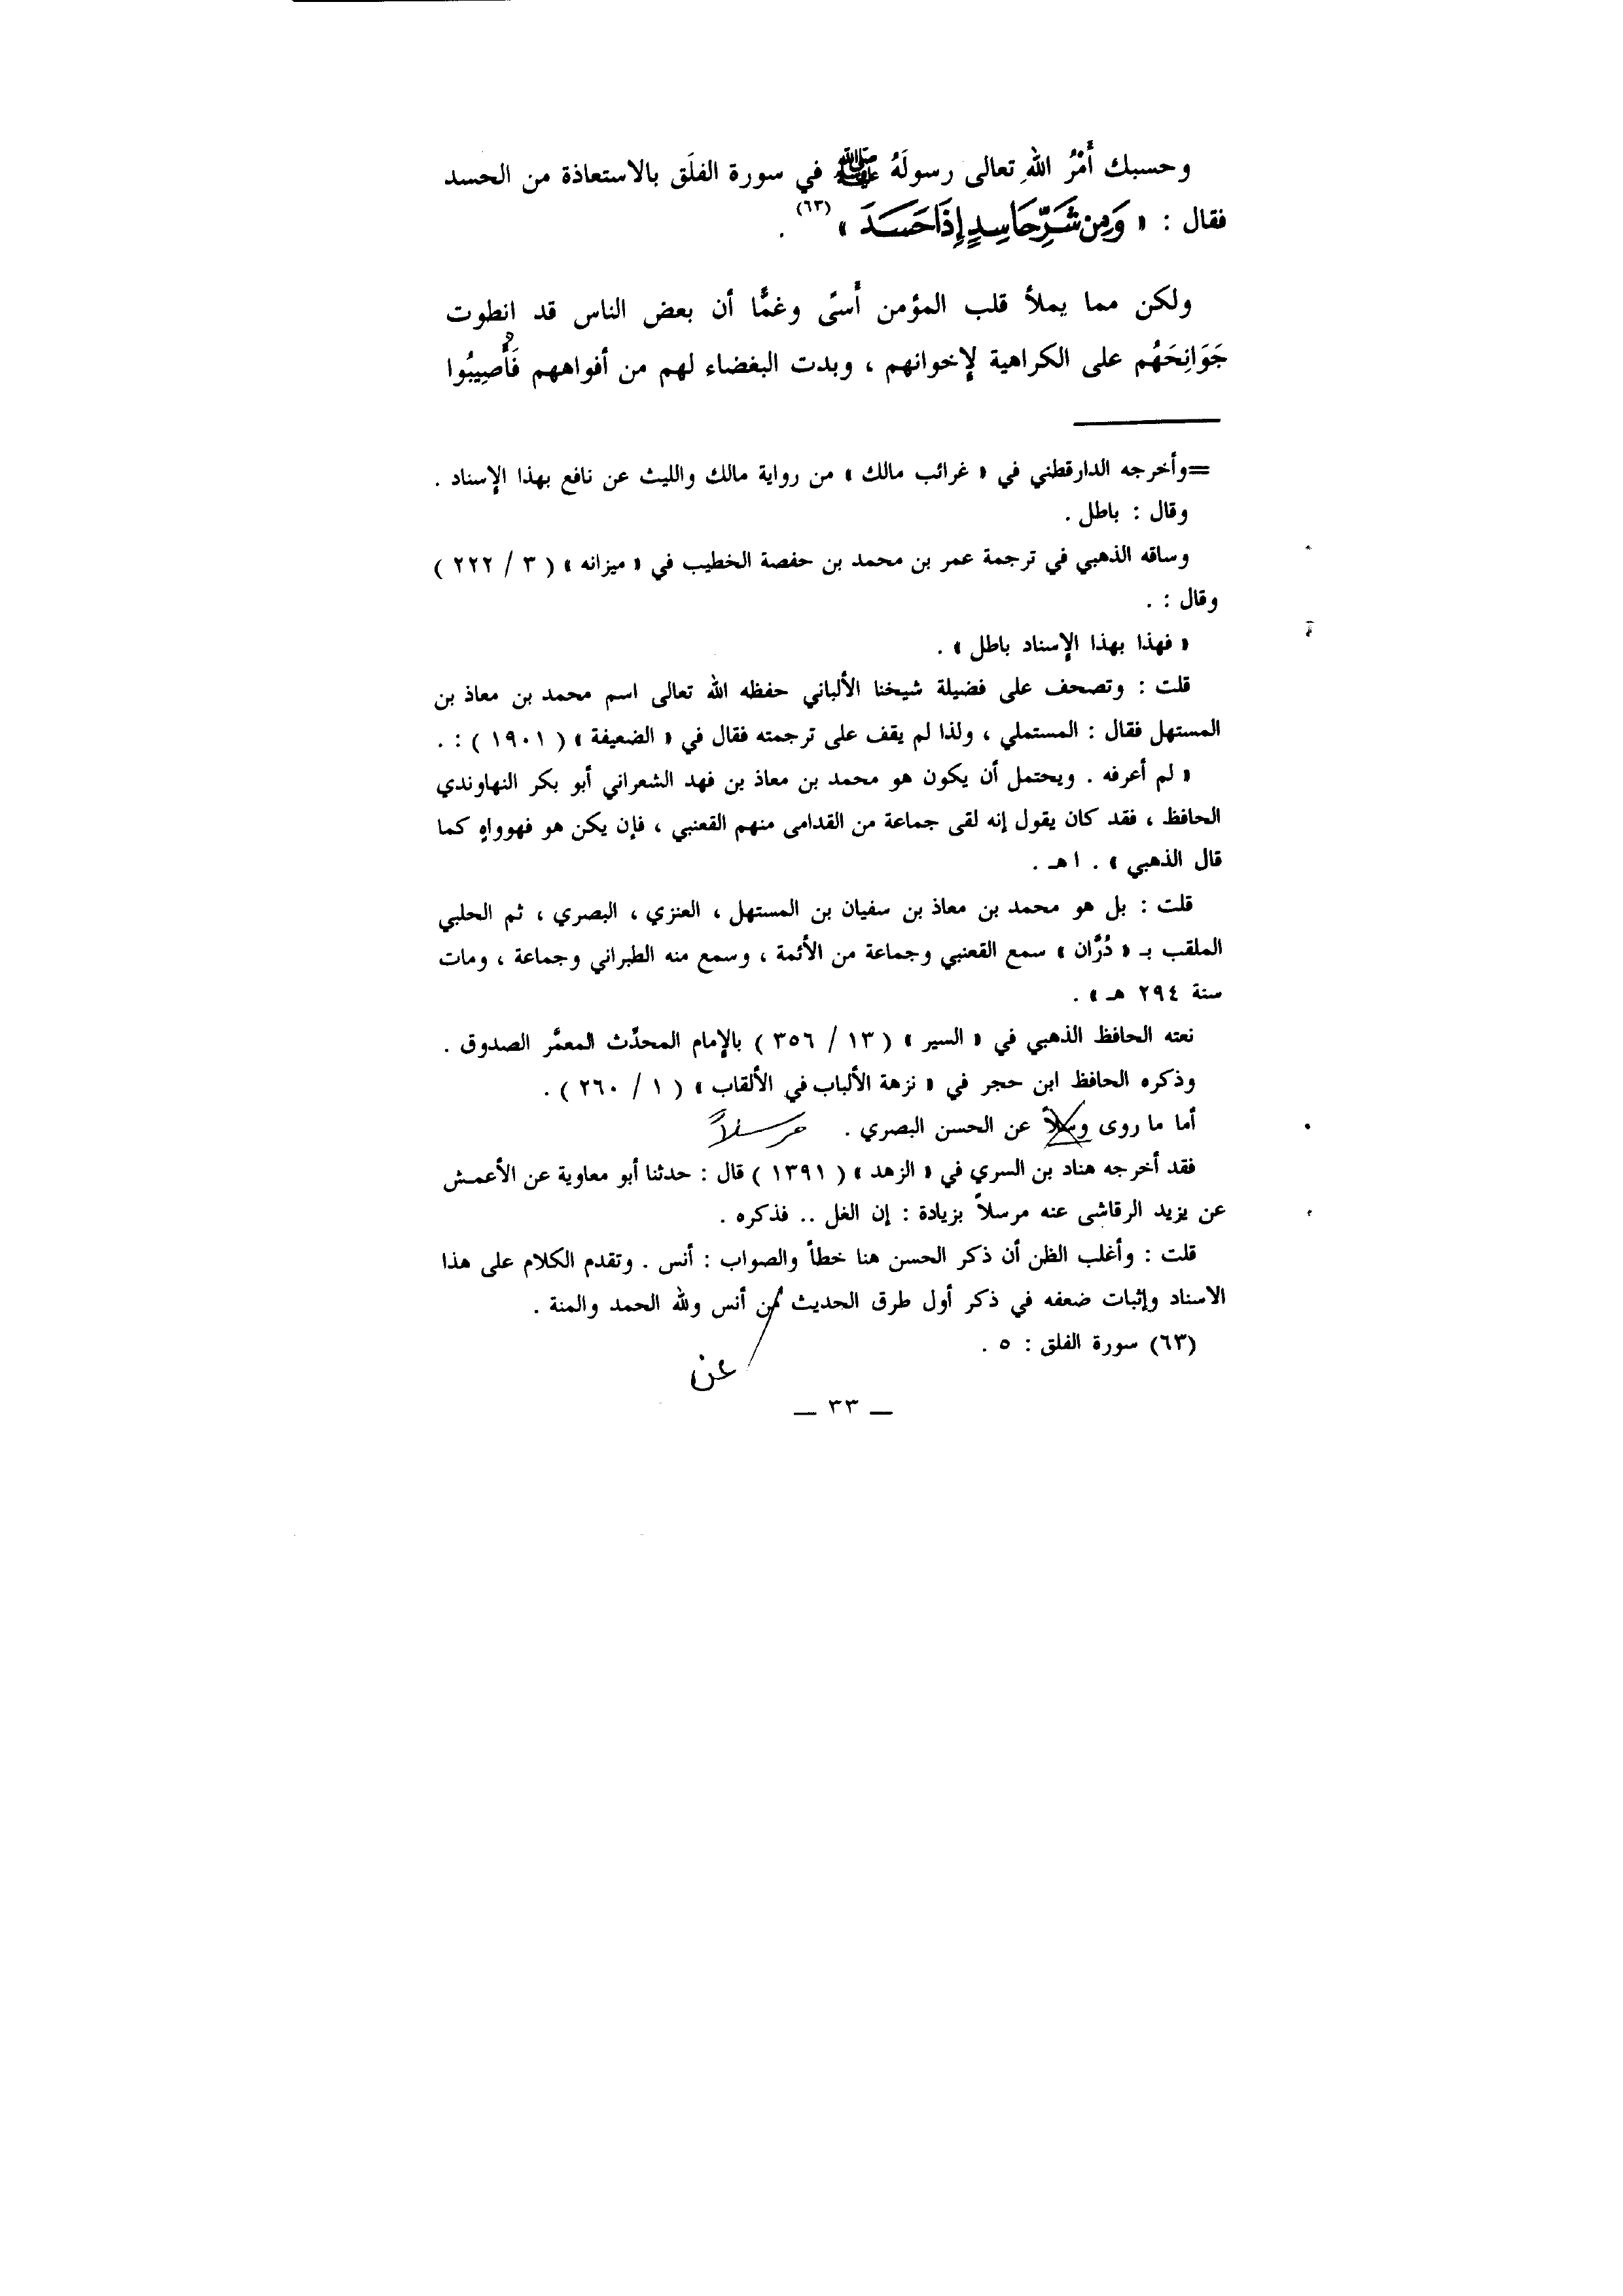 وحسبك أَمْرُ اللهِ تعالى رسولَهُ ﷺ في سورة الفلَق بالاستعاذة من الحسد
فقال : « وَمِن شَرِّ حَاسِدٍ إِذَا حَسَدَ » (٦٣) .
ولكن مما يملأ قلب المؤمن أَسىً وغمًّا أن بعض الناس قد انطوت
جَوَانِحَهُم على الكراهية لإخوانهم ، وبدت البغضاء لهم من أفواههم فَأُصِيبُوا
=وأخرجه الدارقطني في « غرائب مالك » من رواية مالك والليث عن نافع بهذا الإسناد .
وقال : باطل .
وساقه الذهبي في ترجمة عمر بن محمد بن حفصة الخطيب في « ميزانه » ( ٣ / ٢٢٢ )
وقال : .
« فهذا بهذا الإسناد باطل » .
قلت : وتصحف على فضيلة شيخنا الألباني حفظه الله تعالى اسم محمد بن معاذ بن
المستهل فقال : المستملي ، ولذا لم يقف على ترجمته فقال في « الضعيفة » ( ١٩٠١ ) : .
« لم أعرفه . ويحتمل أن يكون هو محمد بن معاذ بن فهد الشعراني أبو بكر النهاوندي
الحافظ ، فقد كان يقول إنه لقى جماعة من القدامى منهم القعنبي ، فإن يكن هو فهوواهٍ كما
قال الذهبي » . ا هـ .
قلت : بل هو محمد بن معاذ بن سفيان بن المستهل ، العنزي ، البصري ، ثم الحلبي
الملقب بـ « دُرَّان » سمع القعنبي وجماعة من الأئمة ، وسمع منه الطبراني وجماعة ، ومات
سنة ٢٩٤ هـ » .
نعته الحافظ الذهبي في « السير » ( ١٣ / ٣٥٦ ) بالإمام المحدِّث المعمَّر الصدوق .
وذكره الحافظ ابن حجر في « نزهة الألباب في الألقاب » ( ١ / ٢٦٠ ) .
أما ما روى وسلاً عن الحسن البصري . مرسلاً
فقد أخرجه هناد بن السري في « الزهد » ( ١٣٩١ ) قال : حدثنا أبو معاوية عن الأعمش
عن يزيد الرقاشى عنه مرسلاً بزيادة : إن الغل .. فذكره .
قلت : وأغلب الظن أن ذكر الحسن هنا خطأ والصواب : أنس . وتقدم الكلام على هذا
الاسناد وإثبات ضعفه في ذكر أول طرق الحديث من أنس ولله الحمد والمنة .
(٦٣) سورة الفلق : ٥ .
عن
— ٣٣ —